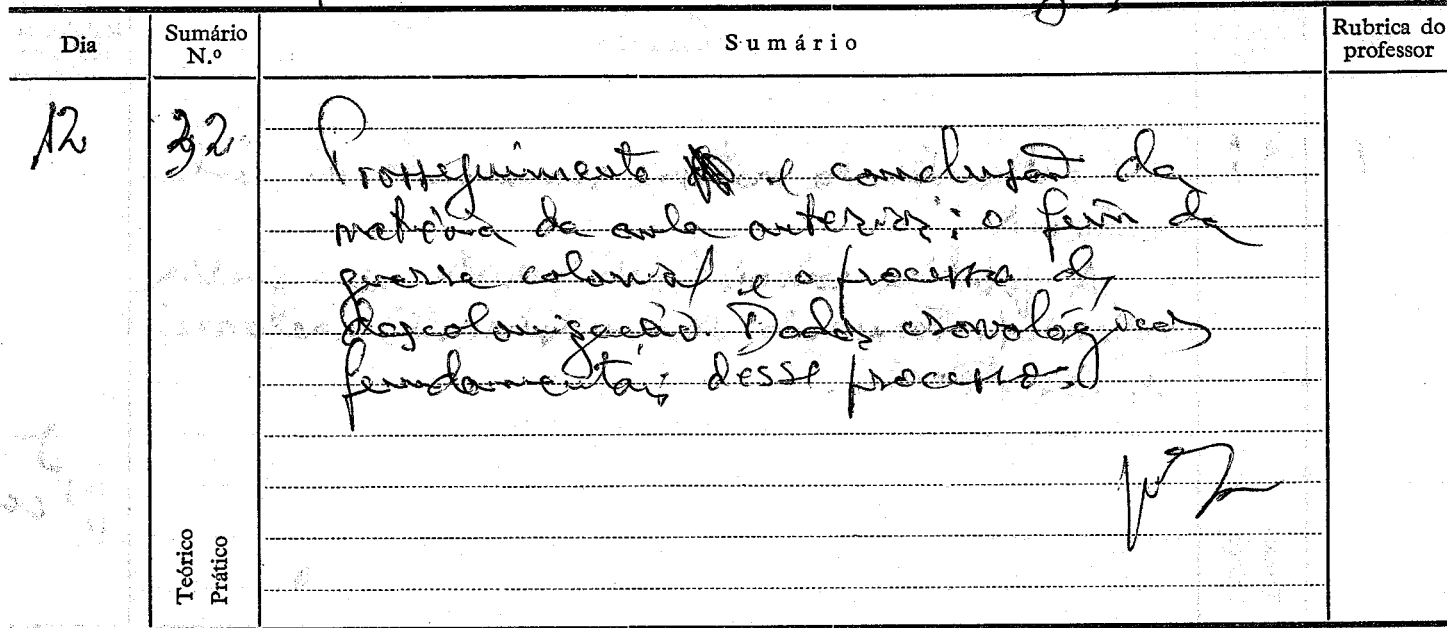 Dia
Sumário
N.º
Sumário
Rubrica do
professor
12
32
Prosseguimento e conclusão da
matéria da aula anterior: o fim da
guerra colonial e o processo de
descolonização. Dados cronológicos
fundamentais desse processo.
Teórico
Prático